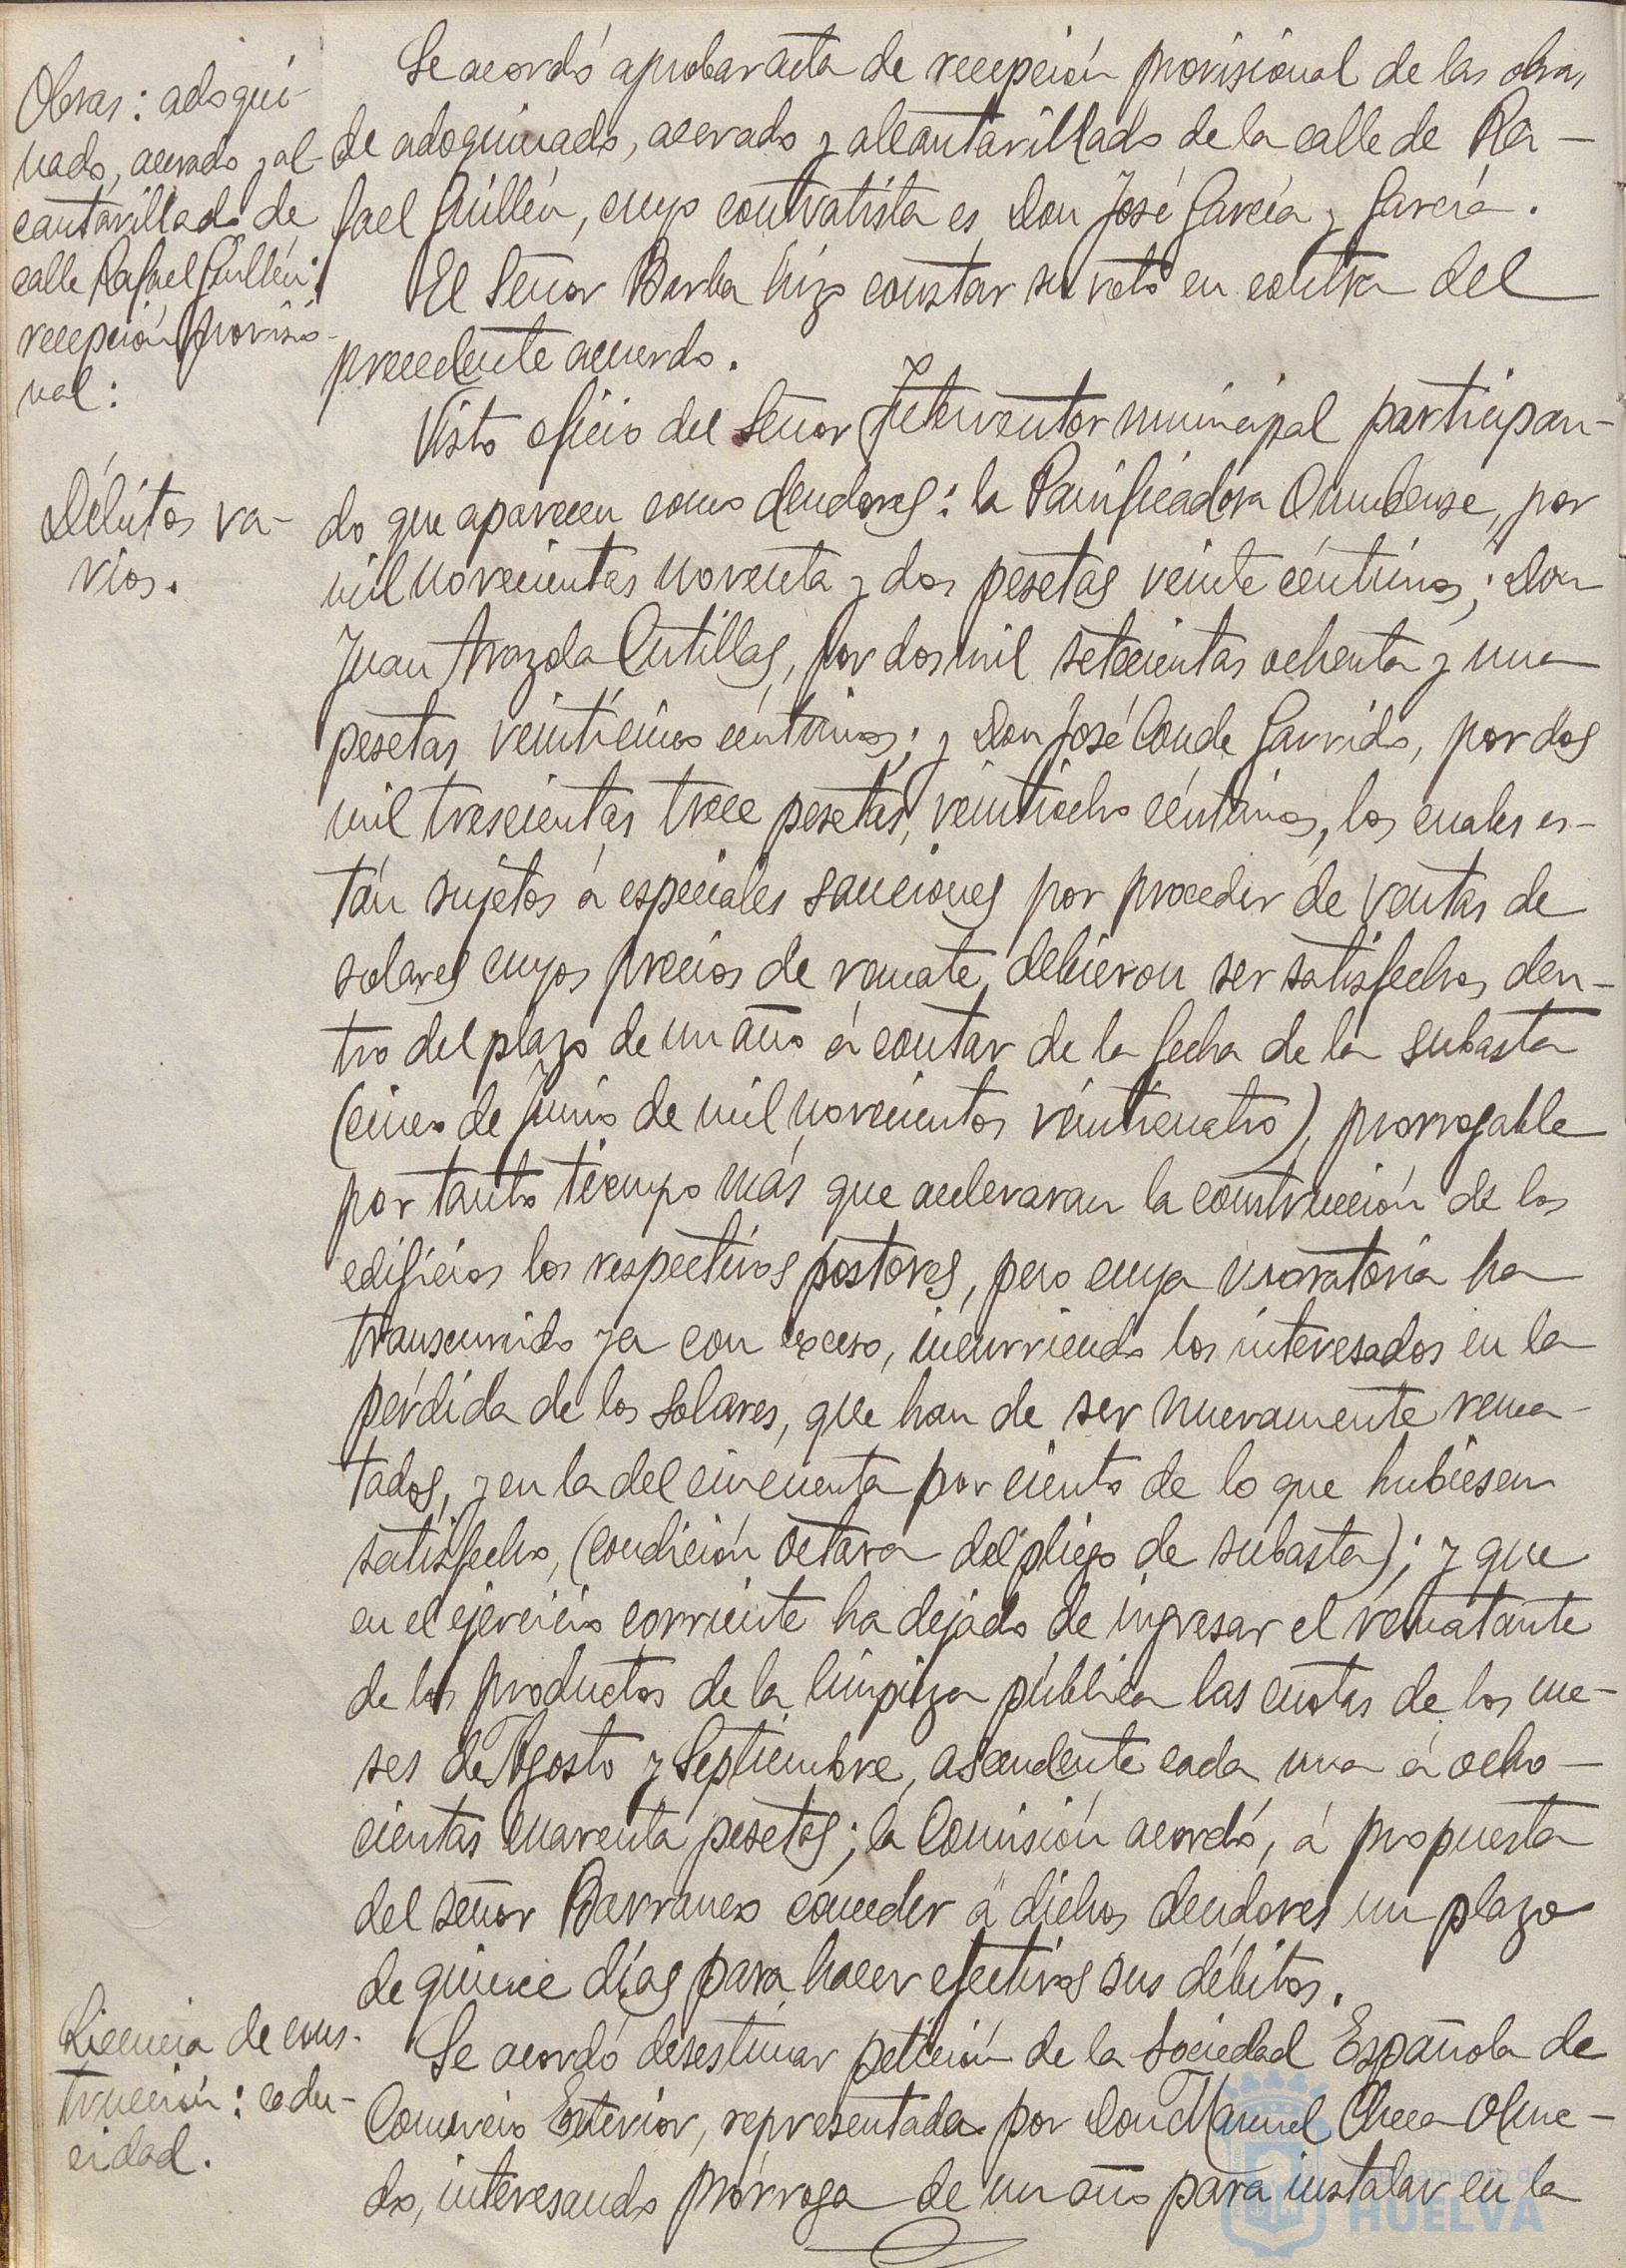 Obras: adoqui-
nado, acerado y al-
cantarillado de
calle Rafael Guillén:
recepción proviso-
nal:
Se acordó aprobar acta de recepción provisional de las obras
de adoquinado, acerado y alcantarillado de la calle de Ra-
fael Guillén, cuyo contratista es Don José García y García.
El Señor Barba hizo constar su voto en contra del
precedente acuerdo.
Débitos va-
rios.
Visto oficio del Señor Interventor municipal participan-
do que aparecen como deudores: la Panificadora Onubense, por
mil novecientas noventa y dos pesetas veinte céntimos; Don
Juan Arazola Cutillas, por dos mil setecientas ochenta y una
pesetas veinticinco céntimos; y Don José Conde Garrido, por dos
mil trescientas trece pesetas, veintiocho céntimos, los cuales es-
tán sujetos á especiales sanciones por proceder de ventas de
solares cuyos precios de remate debieron ser satisfechos den-
tro del plazo de un año á contar de la fecha de la subasta
(cinco de Junio de mil novecientos veinticuatro), prorrogable
por tanto tiempo más que aceleraran la construcción de los
edificios los respectivos postores, pero cuya moratoria ha
transcurrido ya con exceso, incurriendo los interesados en la
pérdida de los solares, que han de ser nuevamente rema-
tados, y en la del cincuenta por ciento de lo que hubiesen
satisfecho, (condición octava del pliego de subasta); y que
en el ejercicio corriente ha dejado de ingresar el rematante
de los productos de la limpieza pública las cuotas de los me-
ses de Agosto y Septiembre, ascendente cada una á ocho-
cientas cuarenta pesetas; la Comisión acordó, á propuesta
del señor Barranco conceder á dichos deudores un plazo
de quince días para hacer efectivos sus débitos.
Licencia de cons-
trucción: cadu-
cidad.
Se acordó desestimar petición de la Sociedad Española de
Comercio Exterior, representada por Don Manuel Checa Olme-
do, interesando prórroga de un año para instalar en la
Ayuntamiento de
HUELVA